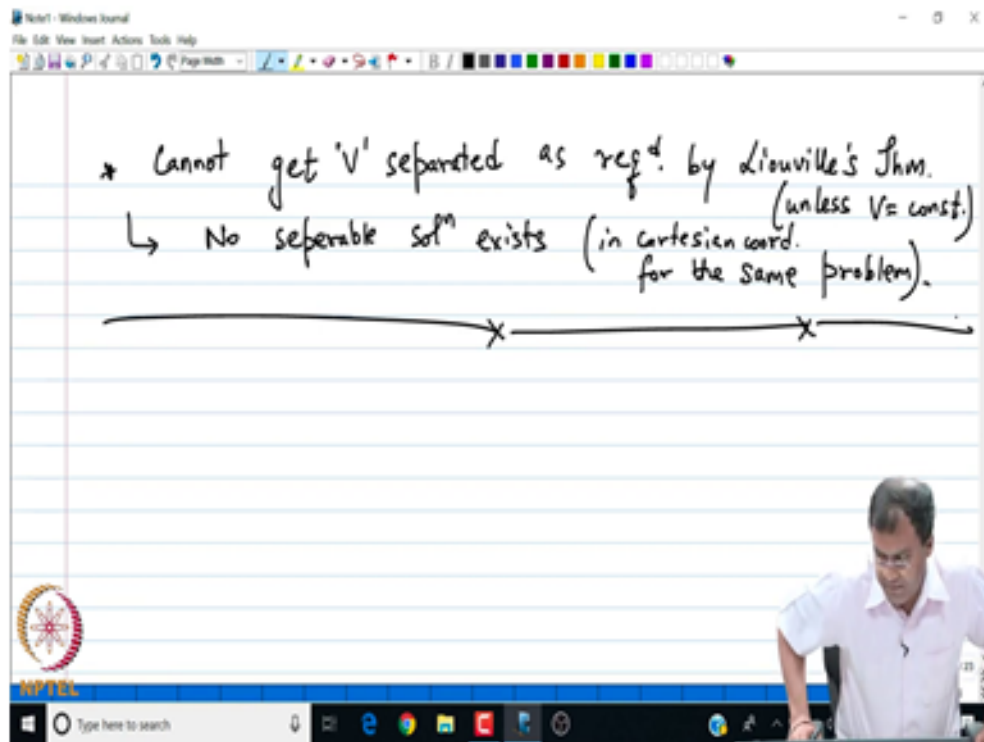 Note1 - Windows Journal
File Edit View Insert Actions Tools Help
Page Width
B I
* Cannot get 'V' separated as reqd. by Liouville's Thm.
(unless V= const.)
↳ No seperable soln exists (in cartesian coord.
for the same problem).
NPTEL
Type here to search